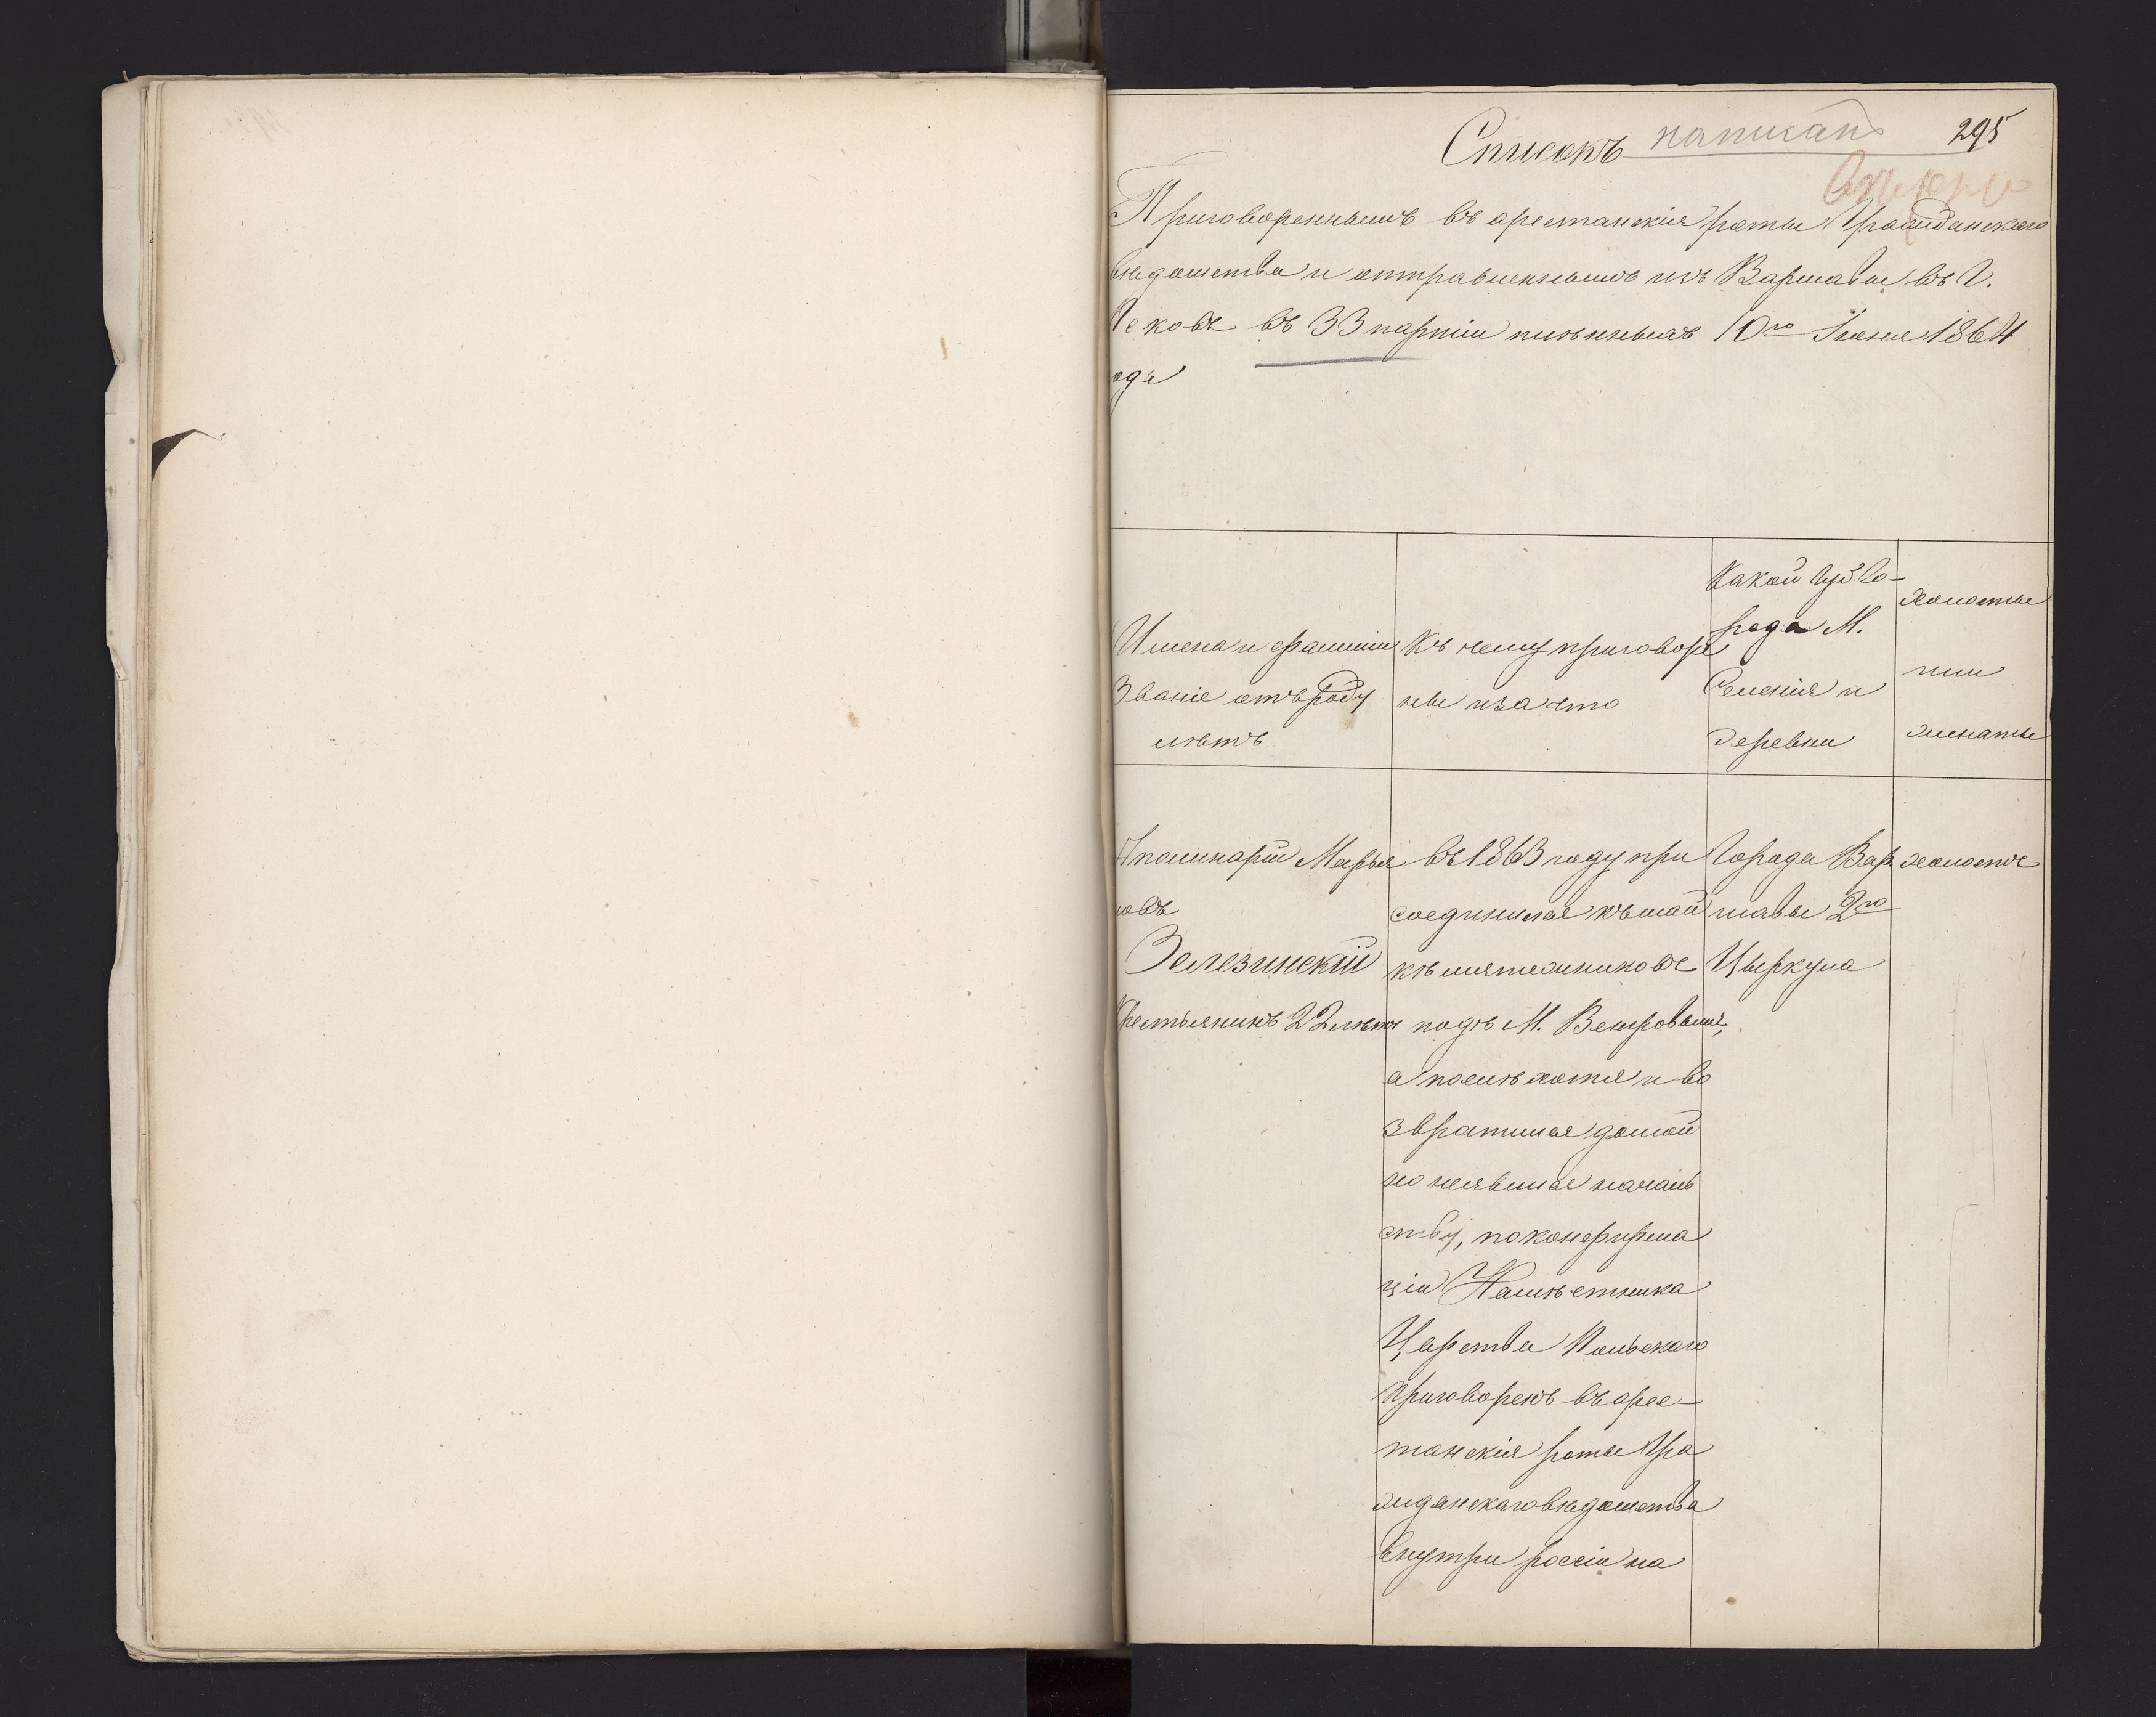 295
Списокъ написанъ
Приговореннымъ въ арестанскія роты Гражданскаго
вѣдомства и отправленнымъ изъ Варшавы въ Г.
Псковъ въ 33 партіи плѣнныхъ 10го Іюня 1864
ода
Имена и фамиліи
Званіе отъ роду
лѣтъ
Къ чему приговоре
ны и за что
Какой Губ. Го-
рода М.
Селенія и
деревни
Холостые
или
женатые
Аполинарій Марья
новъ
Зелезинскій
Крестьянинъ 22 лѣтъ
въ 1863 году при
соединился къ шай
къ мятежниковъ
подъ М. Венгровымъ,
а послѣ хотя и во
звратился домой
но неявился началь
ству, по конфирма
ціи Намѣстника
Царства Польскаго
приговоренъ въ арес-
танскія роты Гра
жданскаго вѣдомства
внутри россіи на
Города Вар
шавы 2го
Цыркула
холостъ